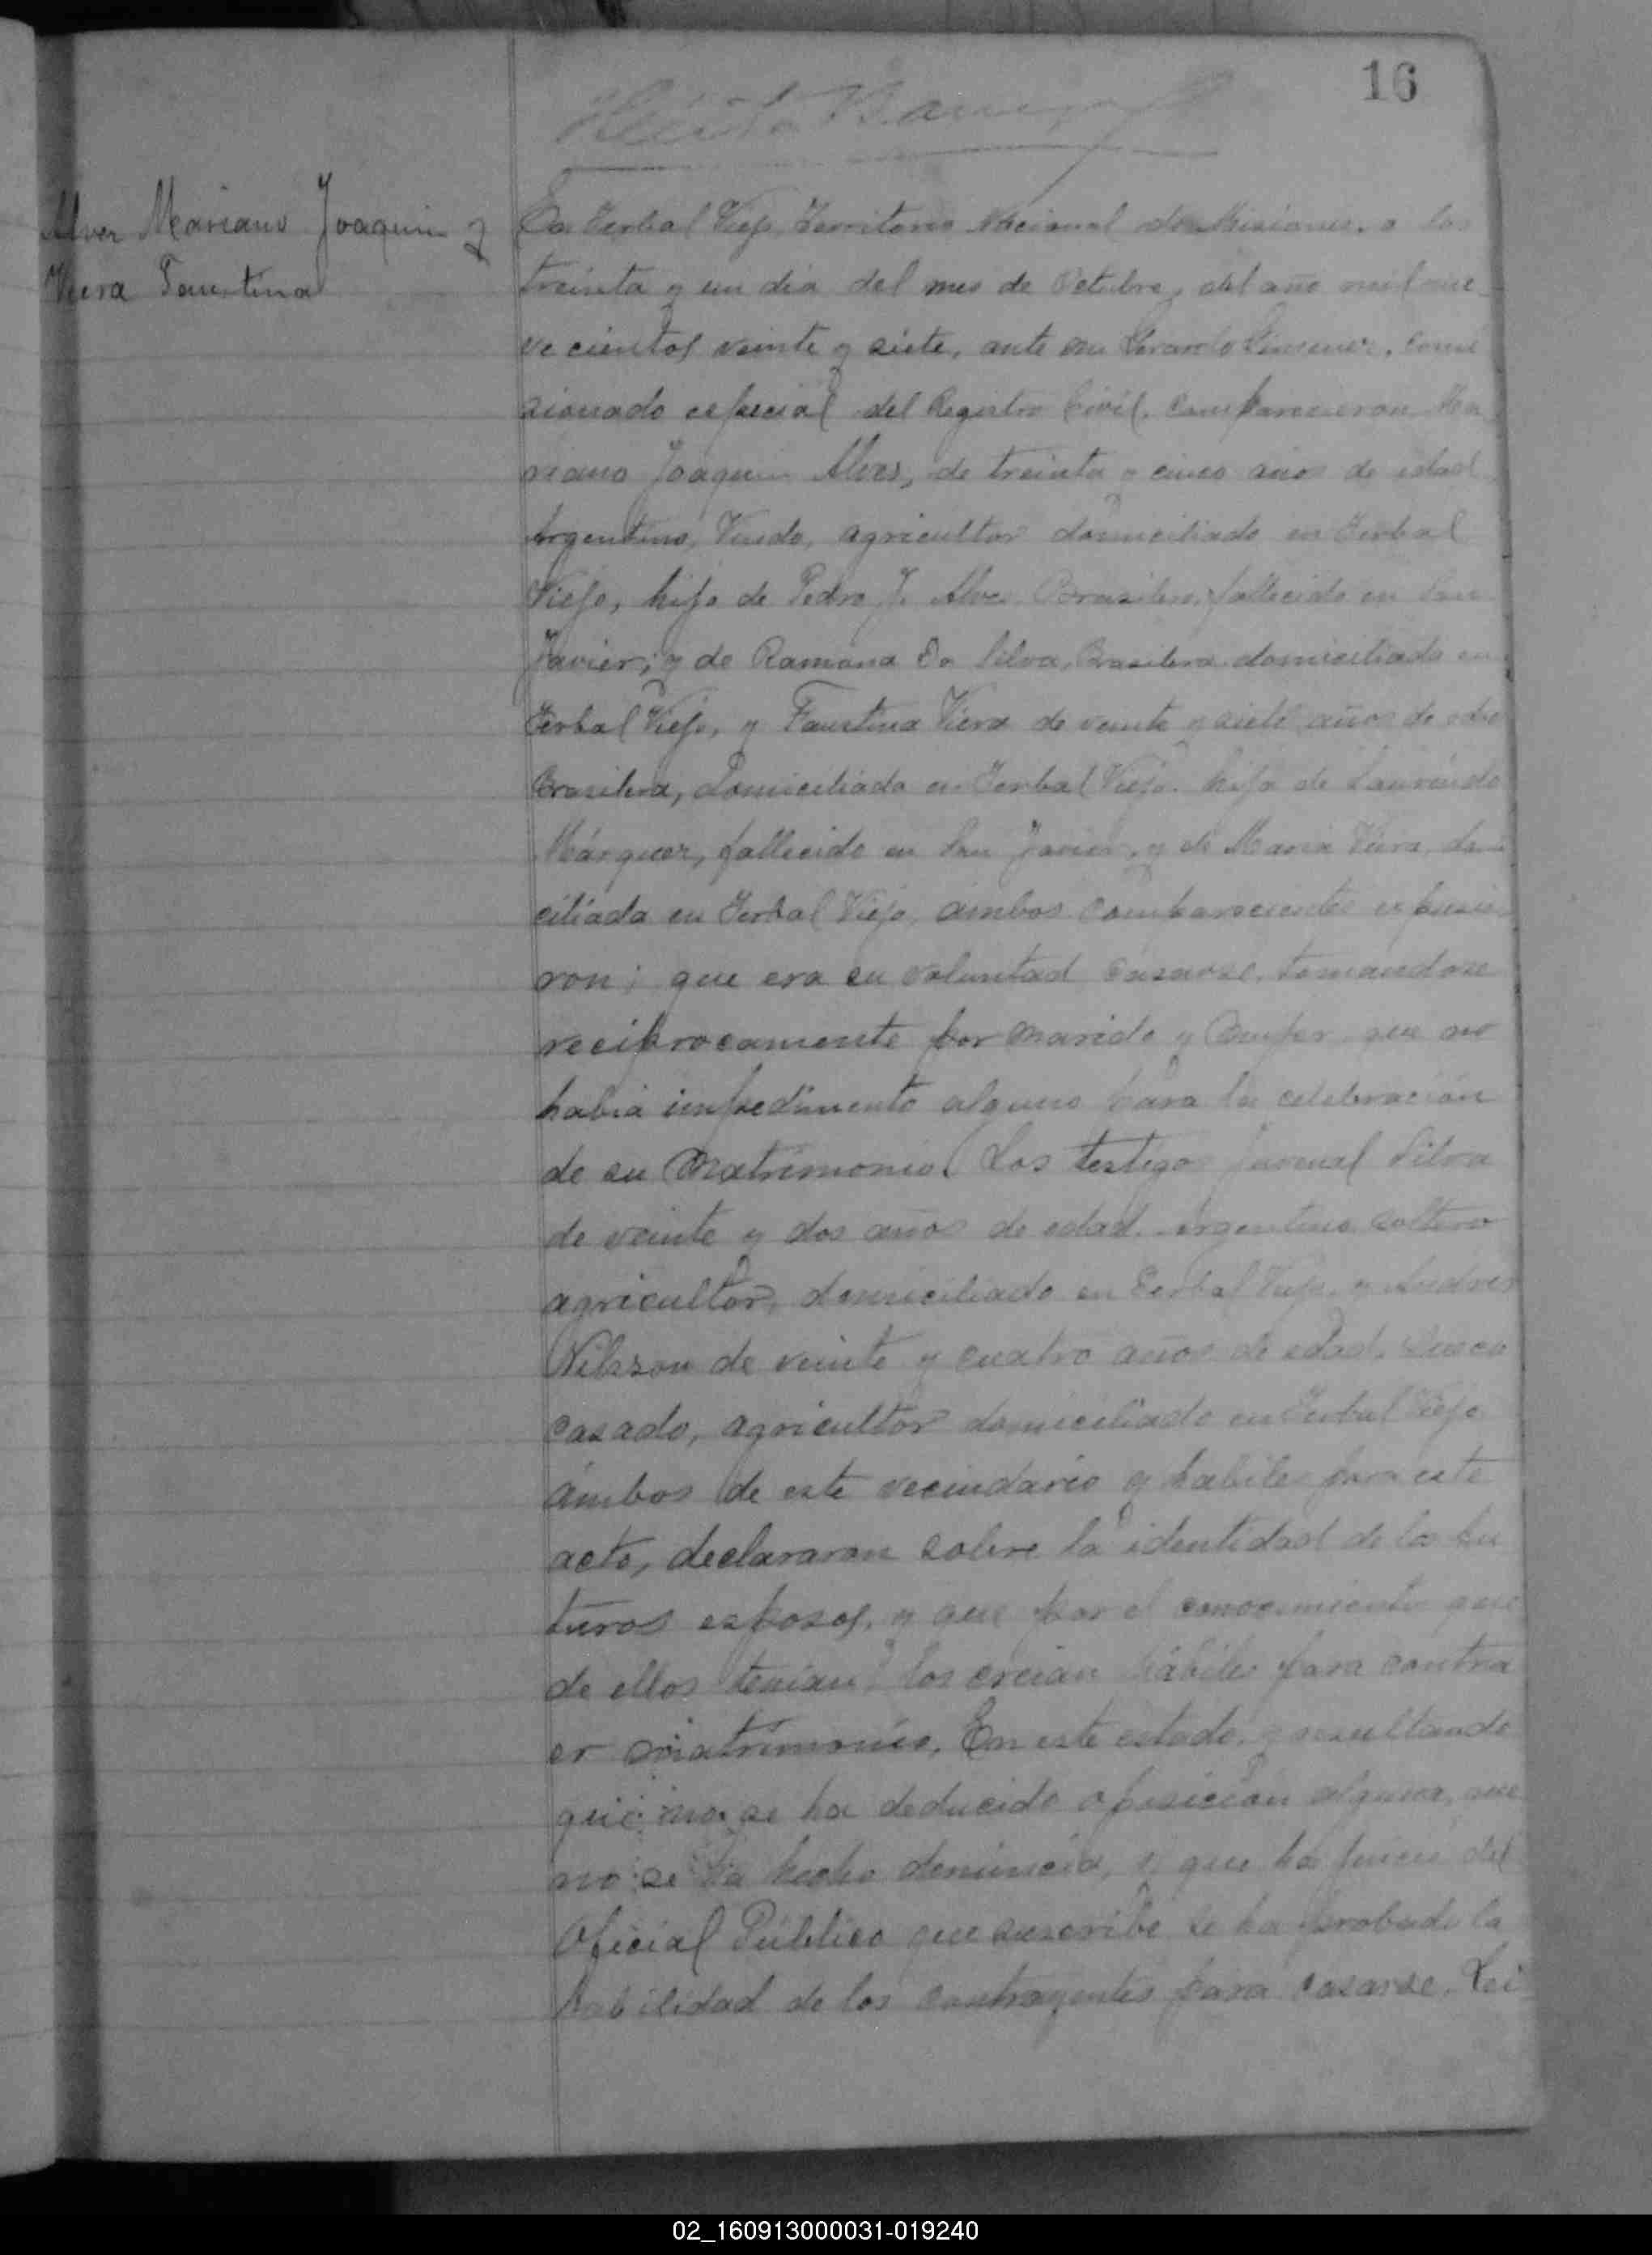 16
Alvez Mariano Joaquin y
Viera Faustina
En Yerbal Viejo Territorio Nacional de Misiones, a los
treinta y un dia del mes de Octubre, del año mil nue
ve cientos veinte y siete, ante mi Gerardo Gimenez, comi
sionado especial del Registro Civil. Comparecieron Ma
riano Joaquin Alves, de treinta y cinco años de edad
Argentino, Viudo, agricultor domiciliado en Yerbal
Viejo, hijo de Pedro J. Alves Brasilero, fallecido en San
Javier; y de Ramona Da Silva, Brasilera domiciliada en
Yerbal Viejo, y Faustina Viera de veinte y siete años de eda
Brasilera, domiciliada en Yerbal Viejo. hija de Laurindo
Márquez, fallecido en San Javier, y de Maria Viera, domi
ciliada en Yerbal Viejo, ambos comparecientes expusie
ron; que era su voluntad casarse, tomandose
reciprocamente por marido y Mujer que no
habia impedimento alguno para la celebración
de su Matrimonio. Los testigos Juvenal Silva
de veinte y dos años de edad. argentino soltero
agricultor, domiciliado en Yerbal Viejo, y Andres
Nilsson de veinte y cuatro años de edad, Sueco
casado, agricultor domiciliado en Yerbal Viejo
ámbos de este vecindario y habiles para este
acto, declararan sobre la identidad de los fu
turos esposos, y que por el conocimiento que
de ellos tenian los creian hábiles para contra
er matrimonio. En este estado, y resultando
que no se ha deducido oposición alguna, que
no se ha hecho denuncia, y que ha juicio del
Oficial Público que suscribe se ha probado la
habilidad de los contrayentes para casarse. Lei
02_160913000031-019240